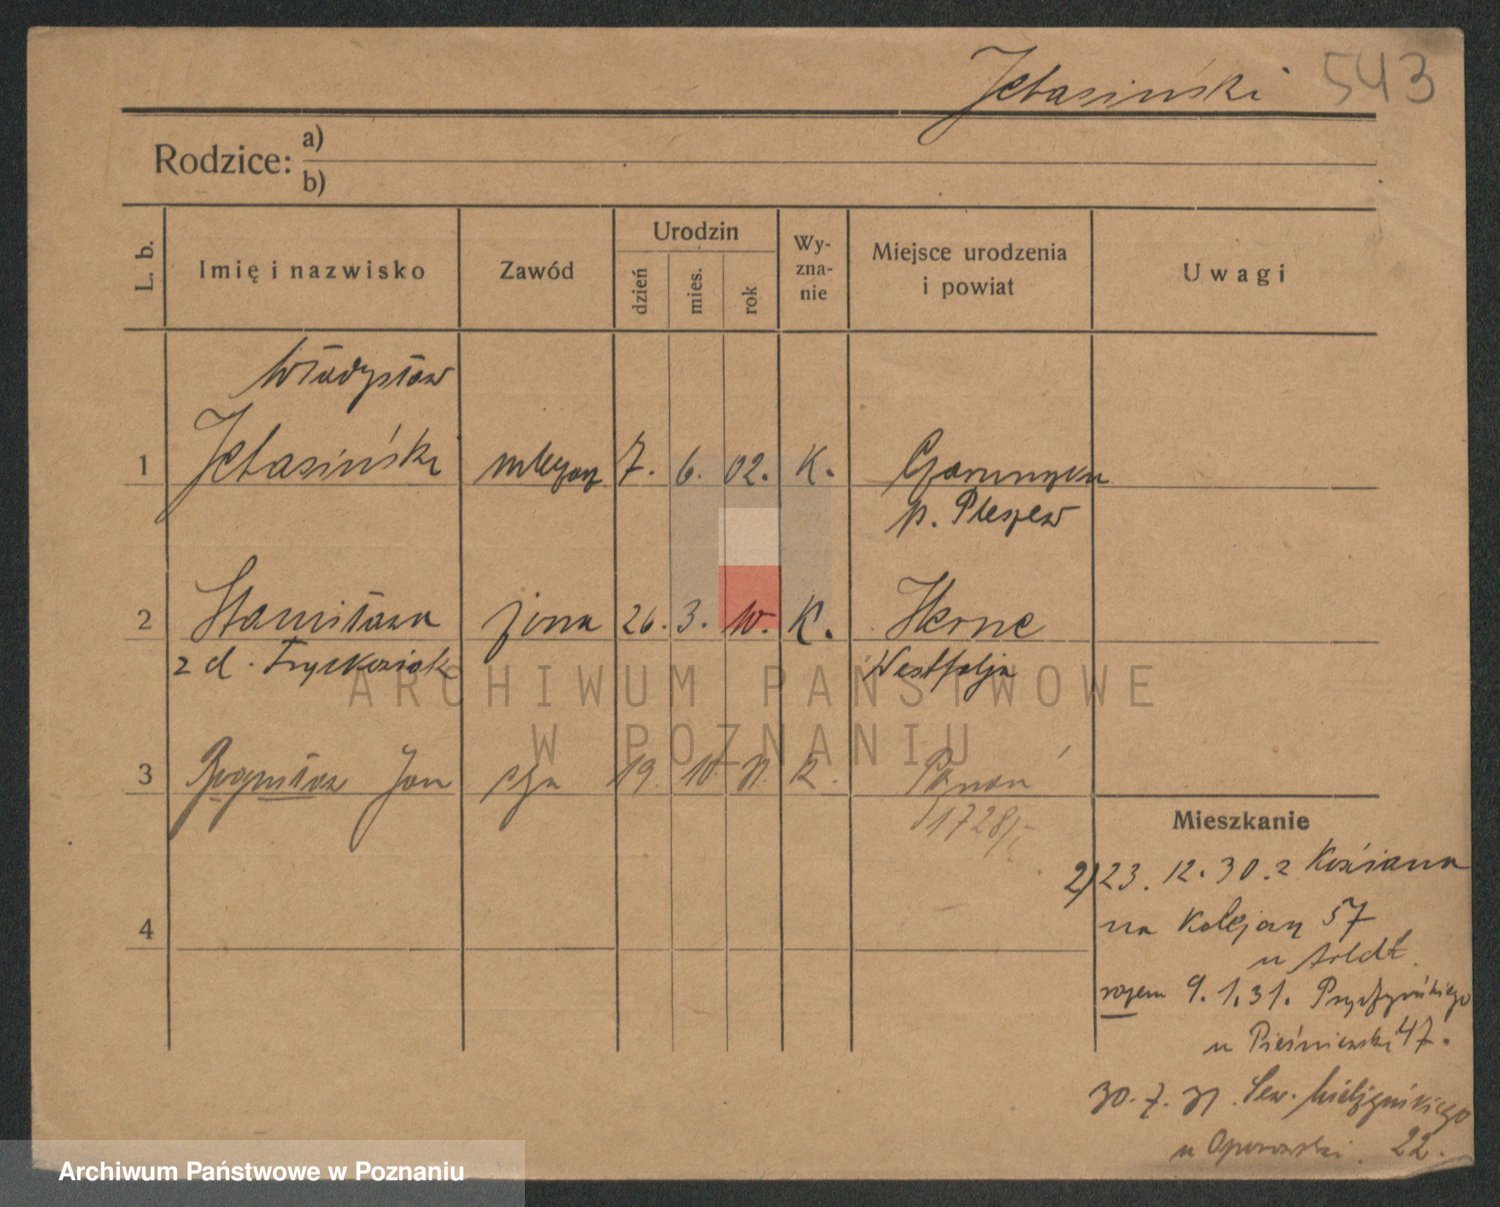 Jebasiński 543
Rodzice: a)
b)
L. b.
Imię i nazwisko
Zawód
Urodzin
dzień
mies.
rok
Wy-
zna-
nie
Miejsce urodzenia
i powiat
Uwagi
Władysław
1 Jebasiński 7. 6. 02. K.
p. Pleszew
2 Stanisława żona 26. 3. 10. K. Herne
z d. Westfalja
3 Jan 19. 10. 31 K. Poznań
1728/
Mieszkanie
2) 23. 12. 30. z Kościana
na 57
u Arldt.
razem 9. 1. 31.
u Pieśniewski 47.
30. 7. 31. Sew. Mielżyńskiego
u Oporowski. 22.
4
ARCHIWUM PAŃSTWOWE
W POZNANIU
Archiwum Państwowe w Poznaniu